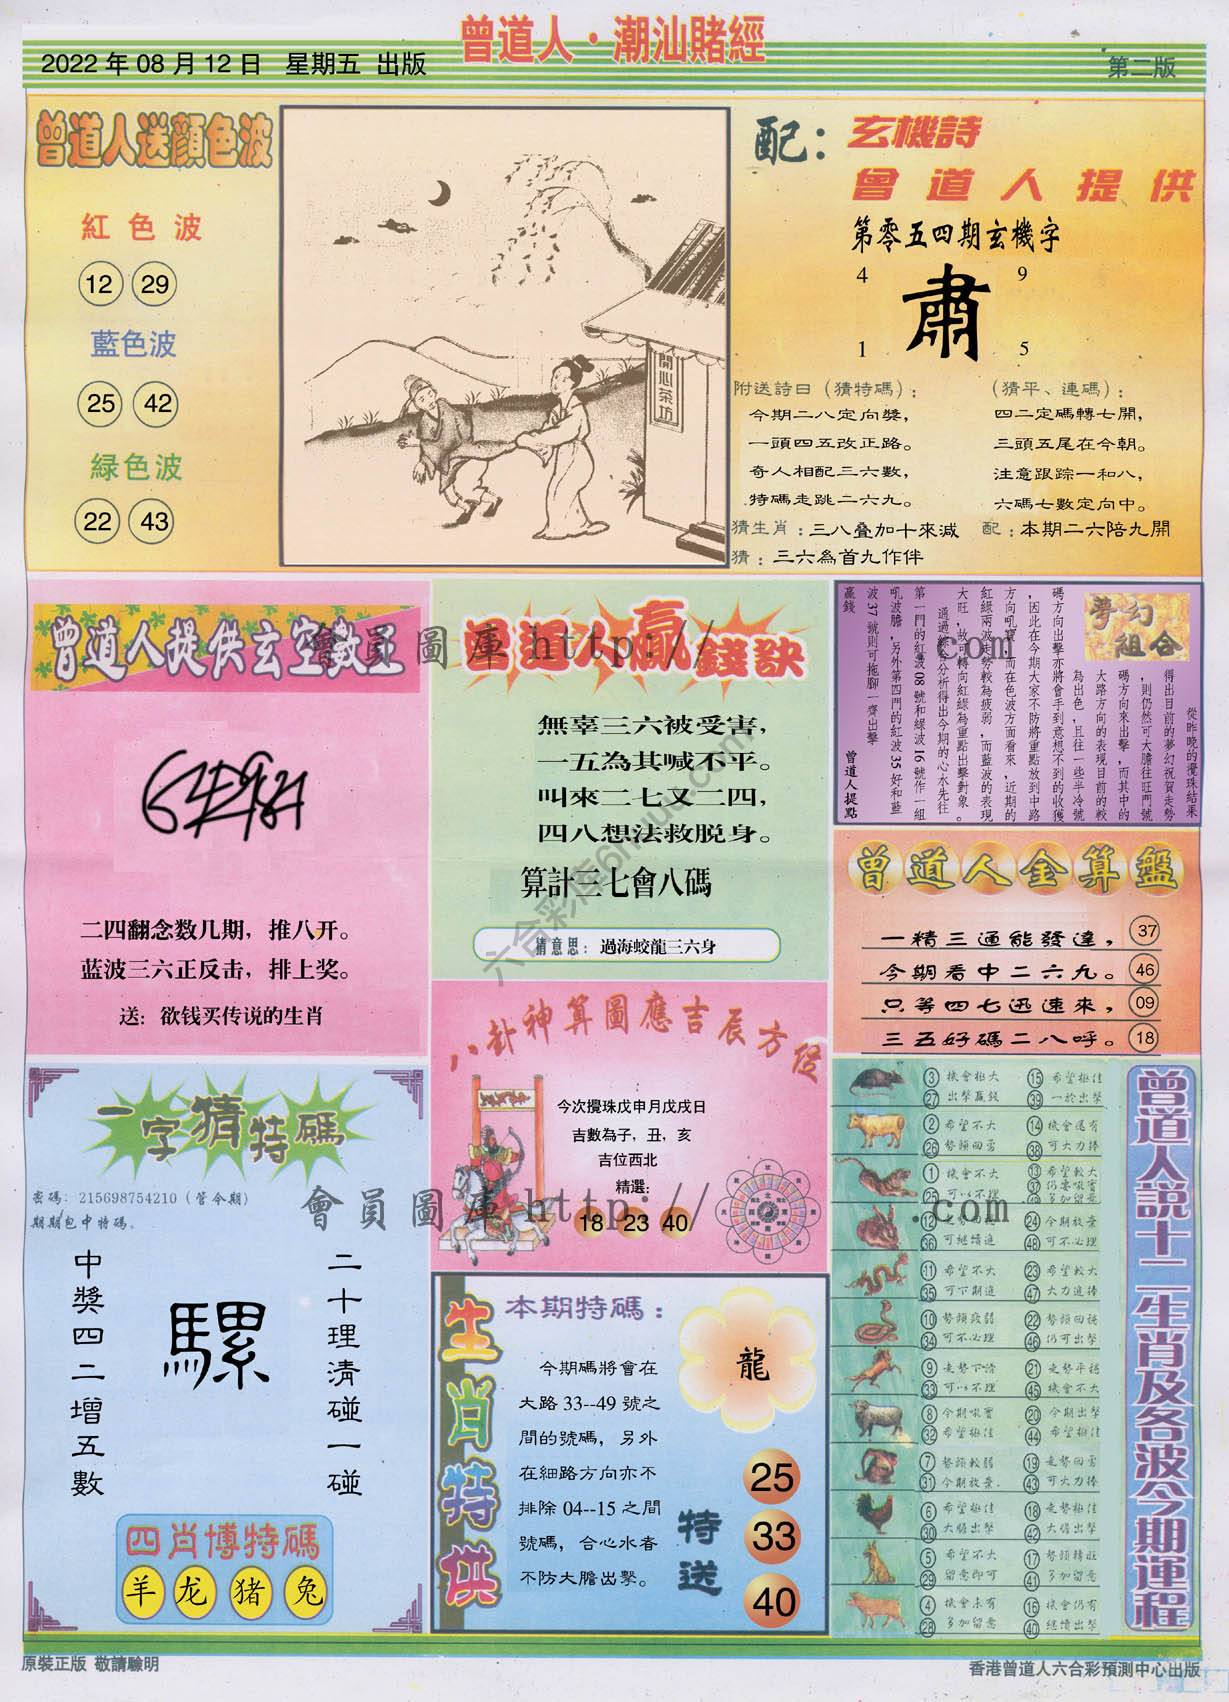 曾道人·潮汕賭經
2022 年 08 月 12 日 星期五 出版
第二版
曾道人送顏色波
紅色波
12 29
藍色波
25 42
緑色波
22 43
開心茶坊
配：玄機詩
曾道人提供
第零五四期玄機字
4 9
肅
1 5
附送詩日（猜特碼）：
今期二八定向獎，
一頭四五改正路。
奇人相配三六數，
特碼走跳二六九。
（猜平、連碼）：
四二定碼轉七開，
三頭五尾在今朝。
注意跟踪一和八，
六碼七數定向中。
猜生肖：三八叠加十來減
配：本期二六陪九開
猜：三六為首九作伴
曾道人提供玄空數王
二四翻念数几期，推八开。
蓝波三六正反击，排上奖。
送：欲钱买传说的生肖
曾道人贏錢訣
無辜三六被受害，
一五為其喊不平。
叫來二七又二四，
四八想法救脱身。
算計三七會八碼
猜意思：過海蛟龍三六身
夢幻組合
從昨晚的攪珠結果
得出目前的夢幻祝賀走勢
，則仍然可大膽往旺門號
碼方向來出擊，而其中的
大路方向的表現目前的較
為出色，且往一些半冷號
碼方向出擊亦將會手到意想不到的收獲
，因此在今期大家不防將重點放到中路
方向吼實，而在色波方面看來，近期的
紅綠兩波走勢較為疲弱，而藍波的表現
大旺，故可轉向紅綠為重點出擊對象。
通過綜合分析得出今期的心水先往
第一門的紅波 08 號和緑波 16 號作一組
吼波膽，另外第四門的紅波 35 好和藍
波 37 號則可拖腳一齊出擊
贏錢
曾道人提點
曾道人金算盤
一精三通能發達， 37
今期看中二六九。 46
只等四七迅速來， 09
三五好碼二八呼。 18
八卦神算圖應吉辰方位
今次攪珠戊申月戊戌日
吉數為子，丑，亥
吉位西北
精選：
18 23 40
一字猜特碼
密碼：215698754210（管令期）
期期包中特碼。
中獎四二增五數
騾
二十理清碰一碰
四肖博特碼
羊 龙 猪 兔
生肖特供
本期特碼：
龍
今期碼將會在
大路 33--49 號之
間的號碼，另外
在細路方向亦不
排除 04--15 之間
號碼，合心水者
不防大膽出擊。
特送
25
33
40
曾道人説十二生肖及各波今期運程
3 機會極大 15 希望極佳
27 出擊贏錢 39 一於出擊
2 希望不大 14 機會還有
26 勢頭回勇 38 可大力捧
1 機會不大 13 希望較大
25 可以不理 37 仍要吼實
49 多加留意
12 走勢回穩 24 今期放棄
36 可繼續追 48 可不必理
11 希望不大 23 希望較大
35 可下期追 47 大力追捧
10 勢頭疲弱 22 勢頭回穩
34 可不必理 46 仍可出擊
9 走勢下滑 21 走勢平穩
33 可以不理 45 機會不大
8 今期吼實 20 今期出擊
32 希望極佳 44 希望極佳
7 勢頭較弱 19 走勢回勇
31 今期放棄 43 可大力捧
6 希望極佳 18 走勢極佳
30 大膽出擊 42 大膽出擊
5 希望不大 17 勢頭轉旺
29 留意即可 41 多加留意
4 機會未有 16 機會仍有
28 多加留意 40 繼續出擊
會員圖庫 http:// .com
會員圖庫 http:// .com
原裝正版 敬請驗明
香港曾道人六合彩預測中心出版